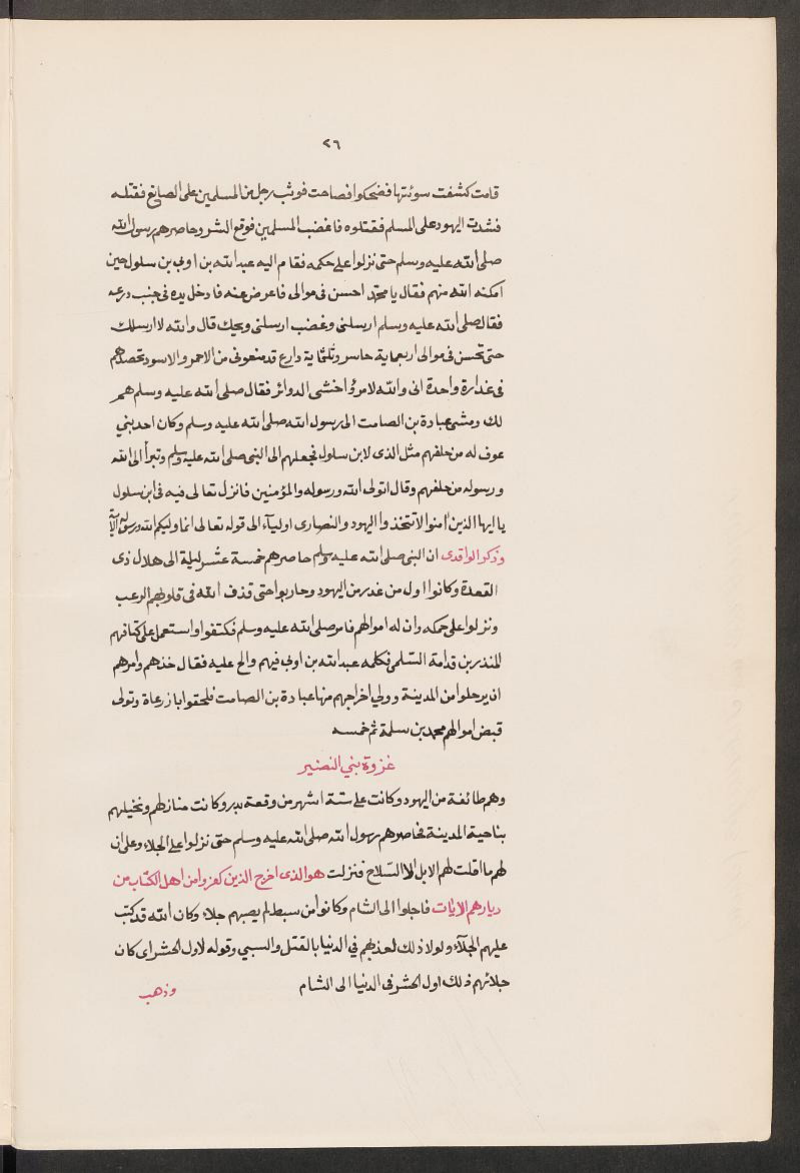 ٢٦
قامت كشفت سوئتها فضحكوا فصاحت فوثب رجل من المسلمين على الصايغ فقتله
فشدت اليهود على المسلم فقتلوه فاغضب المسلمين فوقع الشر وحاصرهم رسول الله
صلى الله عليه وسلم حتى نزلوا على حكمه فقام اليه عبد الله بن اوبي بن سلول حين
امكنه الله منهم فقال يا محمد احسن فى موالى فاعرض عنه فادخل يده فى جنب درعه
فقال صلى الله عليه وسلم ارسلنى وغضب ارسلنى ويحك قال والله لا ارسلك
حتى تحسن فى موالى اربعماية حاسر وثلثماية دارع قد منعونى من الاحمر والاسود تحصدهم
فى غدارة واحدة انى والله لامرؤ اخشى الدوائر فقال صلى الله عليه وسلم هم
لك ومشى عبادة بن الصامت الى رسول الله صلى الله عليه وسلم وكان احد بني
عوف له من حلفهم مثل الذى لابن سلول فجعلهم الى النبى صلى الله عليه وسلم وتبرأ الى الله
ورسوله من حلفهم وقال اتولى الله ورسوله والمؤمنين فانزل تعالى فيه فى ابن سلول
يا ايها الذين امنوا لا تتخذوا اليهود والنصارى اوليآء الى قوله تعالى انما وليكم الله ورسوله الآية
وذكر الواقدى ان النبى صلى الله عليه وسلم حاصرهم خمسة عشر ليلة الى هلال ذى
القعدة وكانوا اول من غدر من اليهود وحاربوا حتى قذف الله فى قلوبهم الرعب
ونزلوا على حكمه وان له اموالهم فامر صلى الله عليه وسلم فكتفوا واستعمل على كتافهم
المنذر بن قدامة السلمى فكلمه عبد الله بن اوبي فيهم والح عليه فقال خذهم وامرهم
ان يرحلوا من المدينة وولي اخراجهم منها عبادة بن الصامت فلحقوا بازرعاة وتولى
قبض اموالهم محمد بن سلمة ثم خمسه
غزوة بني النضير
وهم طائفة من اليهود وكانت على ستة اشهر من وقعة بدر وكانت منازلهم ونخيلهم
بناحية المدينة فحاصرهم رسول الله صلى الله عليه وسلم حتى نزلوا على الجلاء وعلى ان
لهم ما اقلت لهم الابل الا السلاح فنزلت هو الذى اخرج الذين كفروا من اهل الكتاب من
ديارهم الايات فاجلوا الى الشام وكانوا من سبط لم يصبهم جلاء وكان الله قد كتب
عليهم الجلاء ولولا ذلك لعذبهم في الدنيا بالقتل والسبي وقوله لاول الحشر اى كان
جلائهم ذلك اول الحشر فى الدنيا الى الشام
وذهب